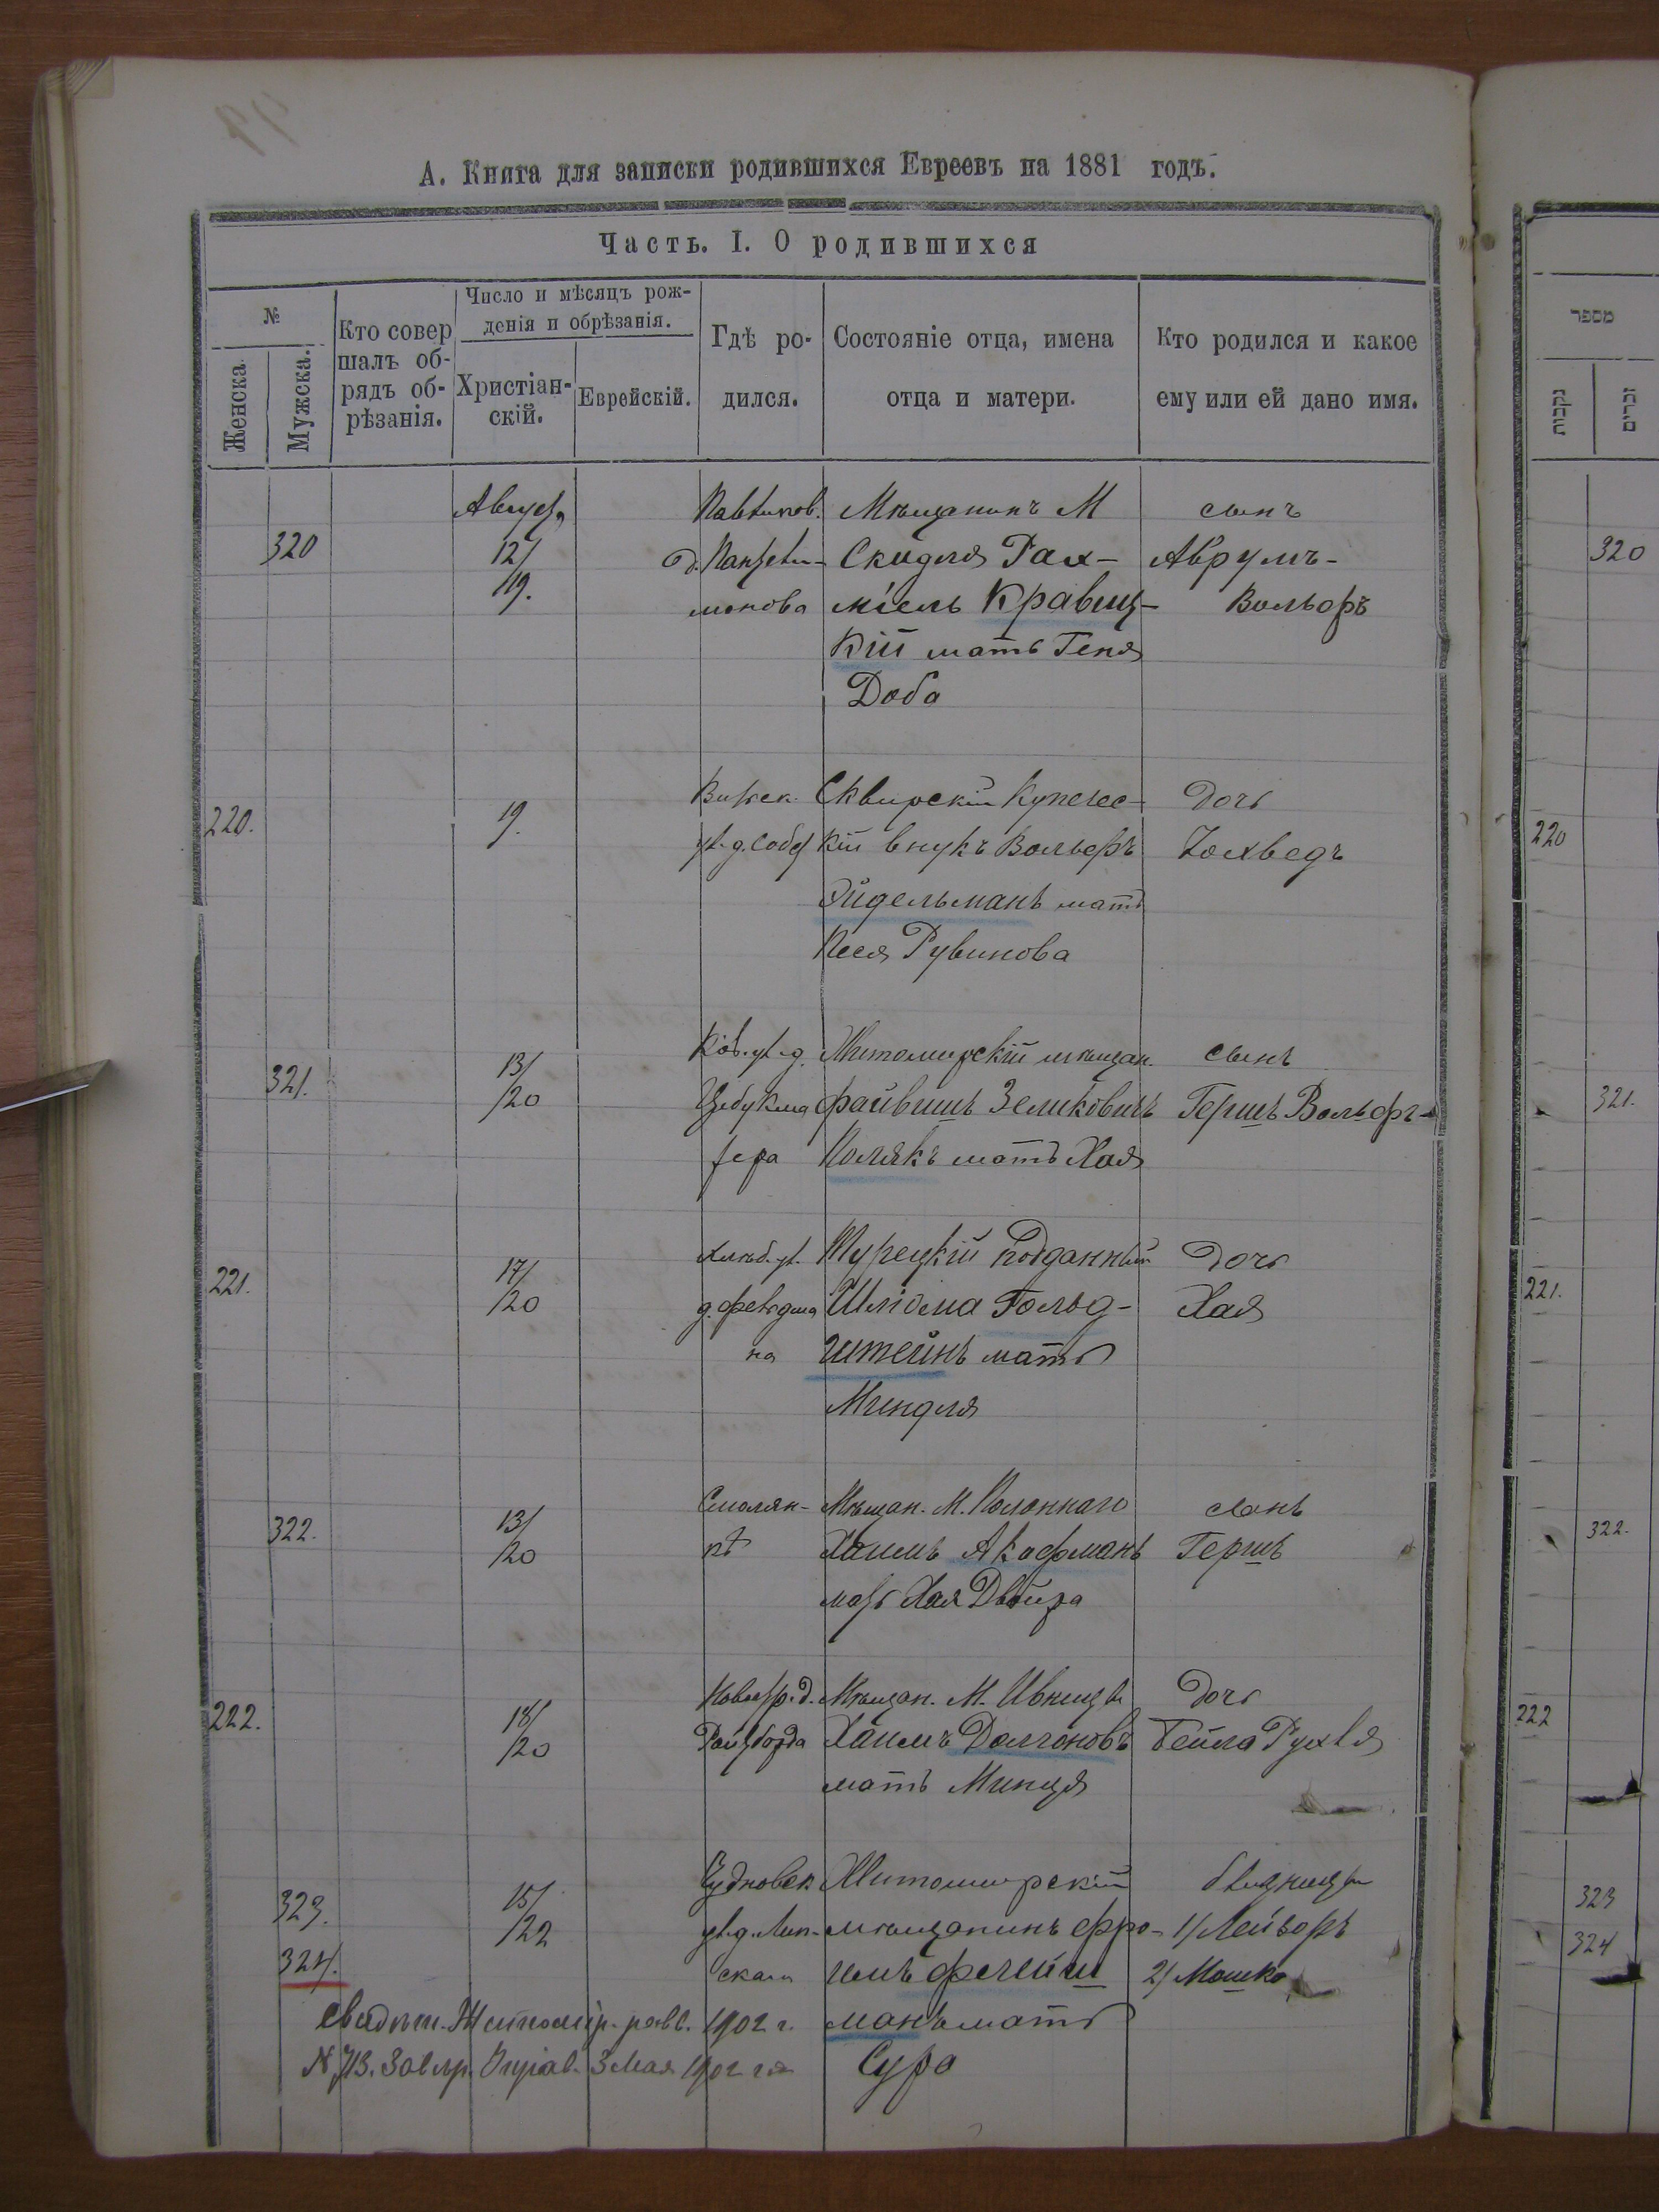 А. Книга для записки родившихся Евреевъ на 1881 годъ.
Часть. I. О родившихся
№
Женска
Мужска.
Кто совер
шалъ об-
рядъ об-
рѣзанія.
Число и мѣсяцъ рож-
денія и обрѣзанія.
Христіан-
скій.
Еврейскій.
Гдѣ ро-
дился.
Состояніе отца, имена
отца и матери.
Кто родился и какое
ему или ей дано имя.
320
Августа
12/
19.
монова
Мѣщанинъ М
Скидля Рах-
міель Кравец-
кій мать Геня
Доба
сынъ
Аврумъ-
Вольфъ
220.
19.
Сквирскій Купечес-
кій внукъ Вольфъ
Эйдельманъ мать
Песя Рувинова
Дочь
Іохведъ
321.
13/
/20
Житомирскій мѣщан.
Файвишъ Зеликовичъ
Полякъ мать Хая
сынъ
Гершъ Вольфъ
221.
17/
/20
на
Турецкій подданный
Шліома Гольд-
штейнъ мать
Миндля
Дочь
Хая
322.
13/
/20
Смолян-
кѣ
Мѣщан. М. Полоннаго
Хаимъ Акофманъ
мать Хая Двойра
сынъ
Гершъ
222.
18/
/20
Мѣщан. М. Ивницы
Хаимъ Долгоновъ
мать Минця
Дочь
Бейла Рухля
323.
324.
15/
/22
Чудновск
ул. д. Лип-
скаго
Житомирскій
мѣщанинъ Фро-
имъ Флейш
манъ мать
Сура
близницы
1/ Лейзоръ
2/ Мошко
Свидѣт. Житомір. равв. 1902 г.
3 Мая 1902 г.
מספר
נקבות
זכרים
320
220
321.
221.
322.
222
323
324